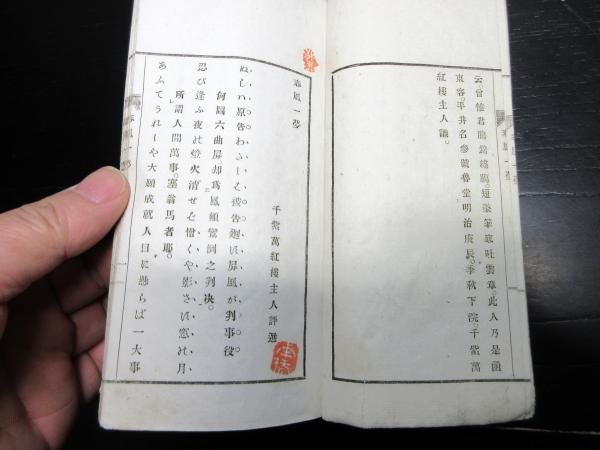 云。曾惟君勝鴛鴦綿。短檠筆底吐雲章。此人乃是函
東客。平井名參號魯堂明治庚辰。季秋下浣。千紫萬
紅樓主人識。
風一夢
千紫萬紅樓主人評選
ぬしハ原告わたしは被告廻す屏風が判事役
何圖六曲屏却爲鳳顛鸞倒之判决。
忍び逢ふ夜の燈火消せど憎くや影さす窓の月
所謂人間萬事。塞翁馬者耶。
あふてうれしや大願成就人目に懸らば一大事